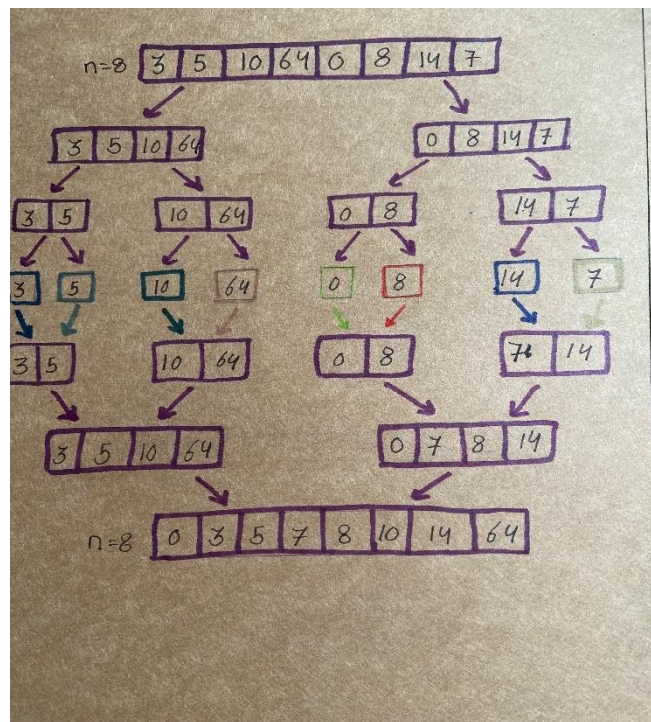 n=8 3 5 10 64 0 8 14 7
3 5 10 64 0 8 14 7
3 5 10 64 0 8 14 7
3 5 10 64 0 8 14 7
3 5 10 64 0 8 7 14
3 5 10 64 0 7 8 14
n=8 0 3 5 7 8 10 14 64